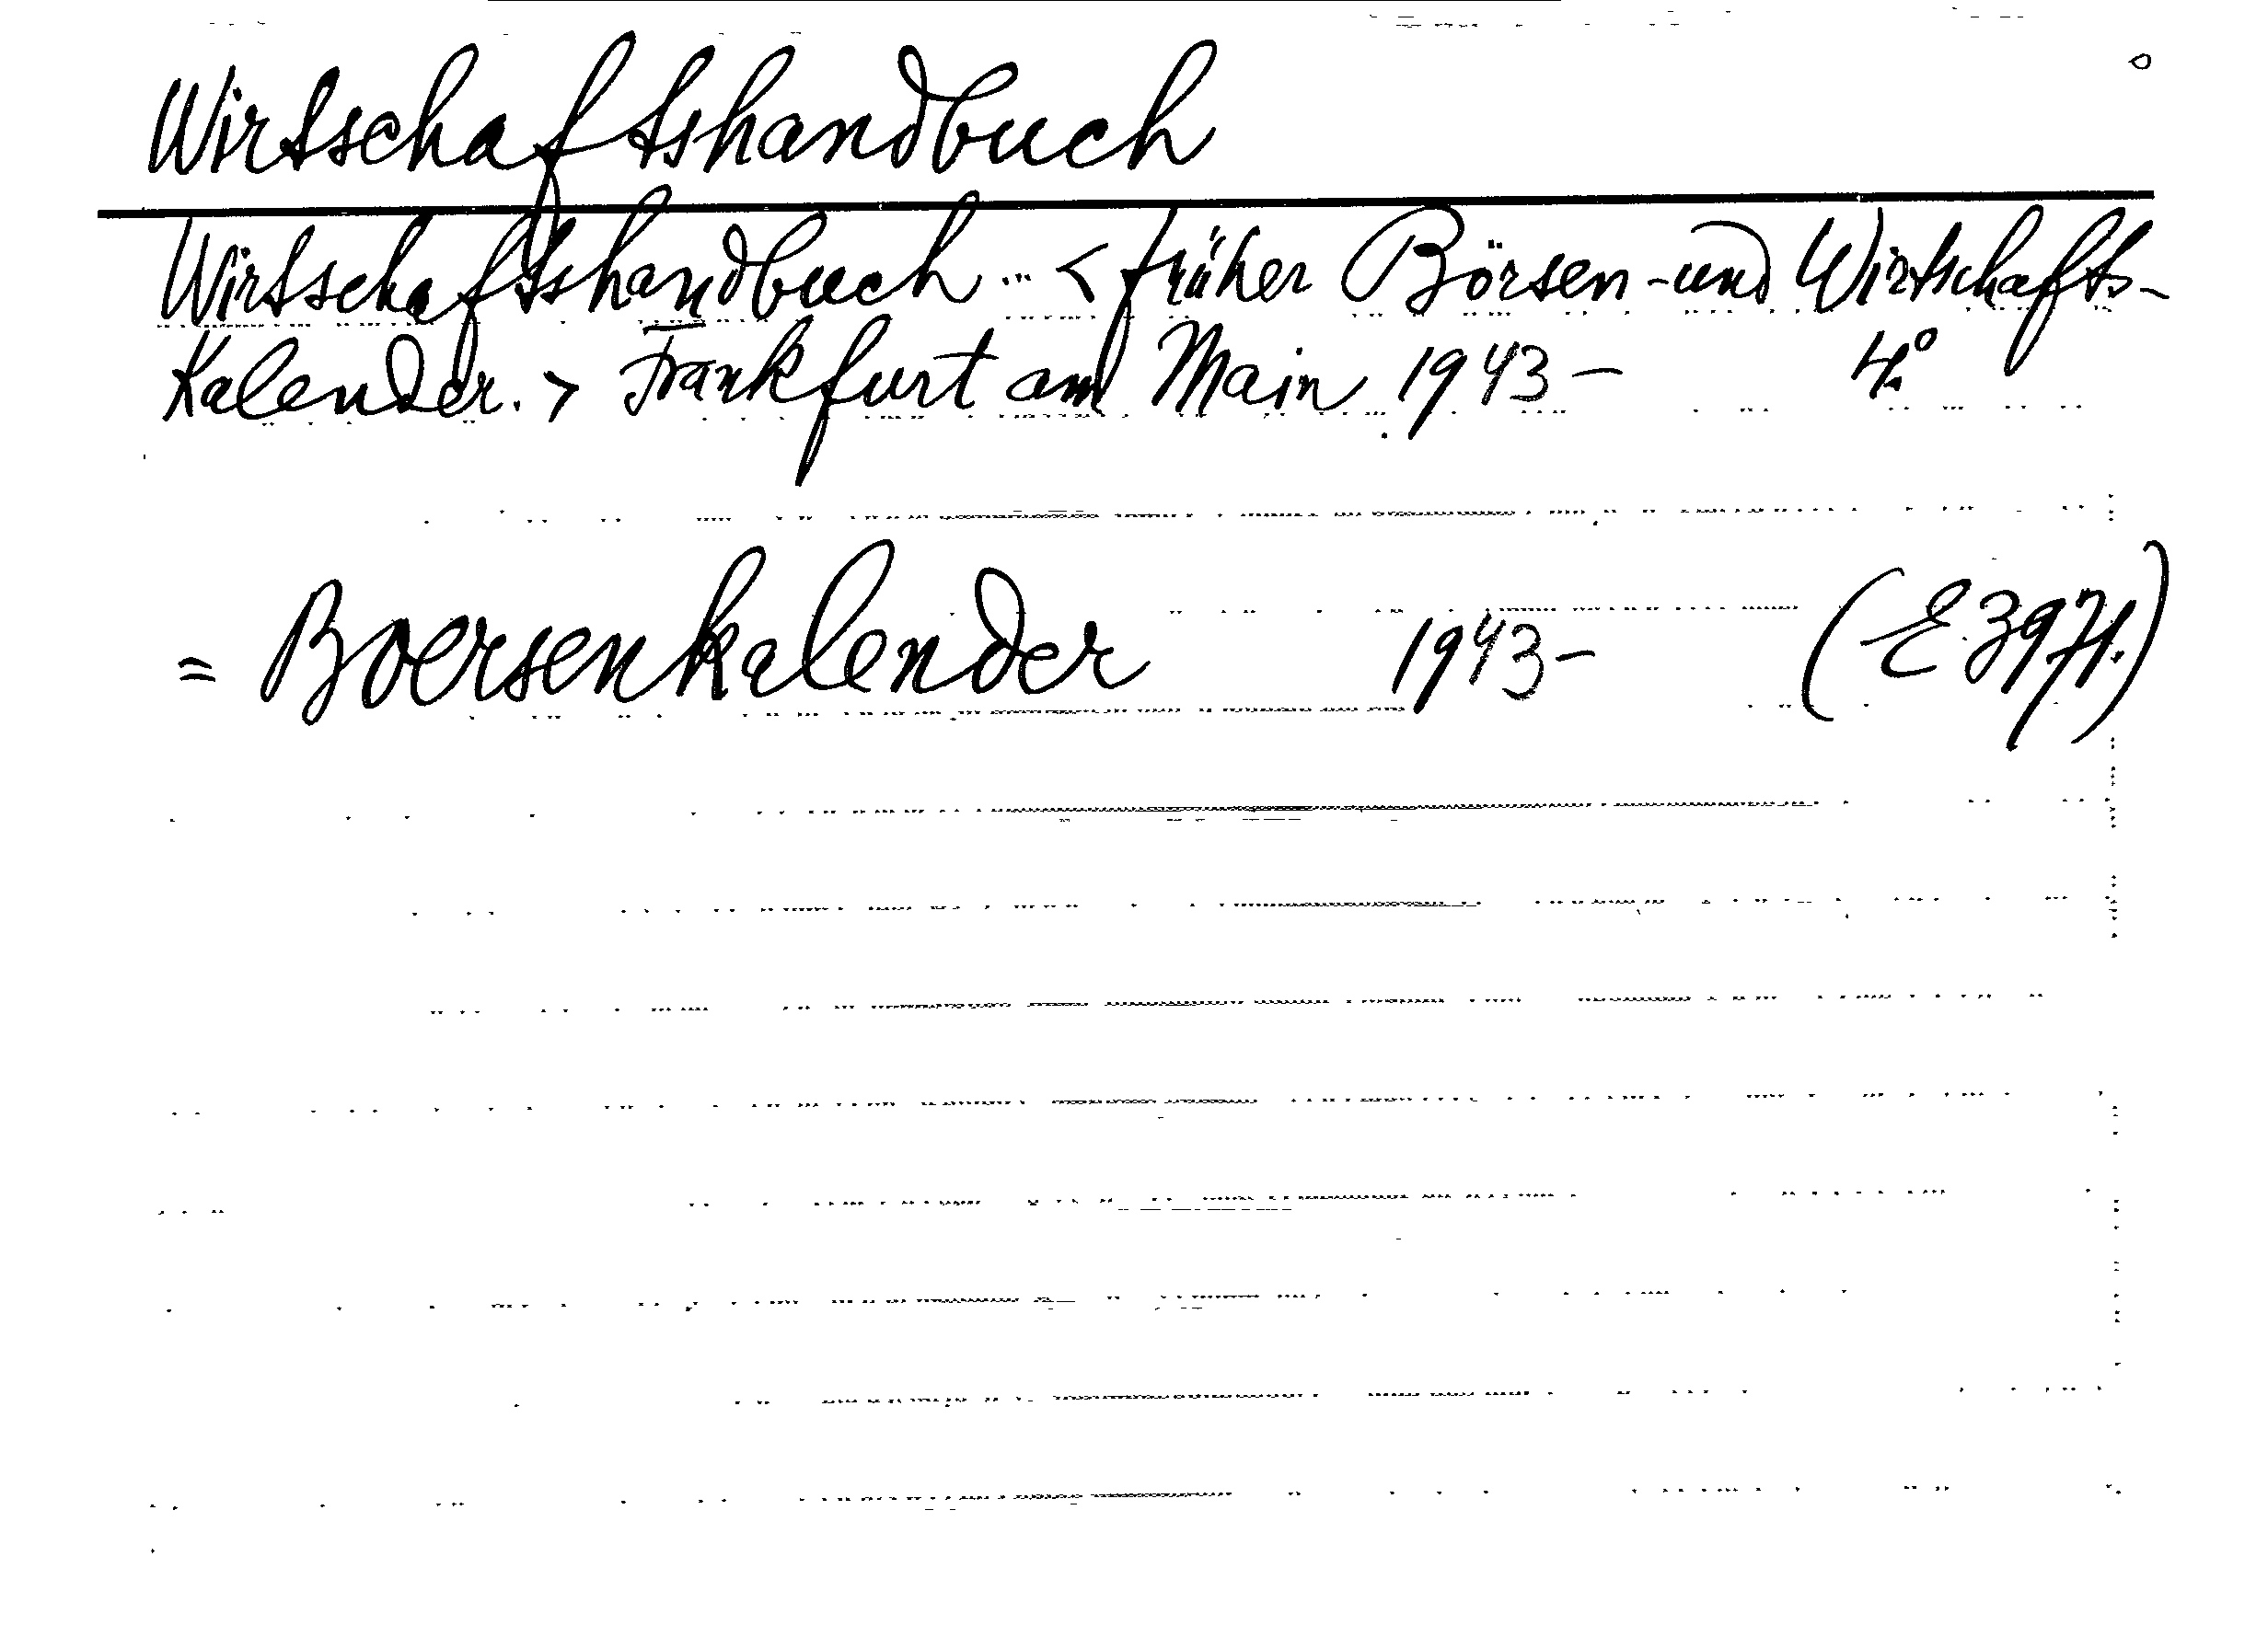 Wirtschaftshandbuch
Wirtschaftshandbuch ... < früher Börsen- und Wirtschafts-
Kalender. > Frankfurt am Main 1943 – 4°.
= Boersenkalender 1943 – (E. 3971.)